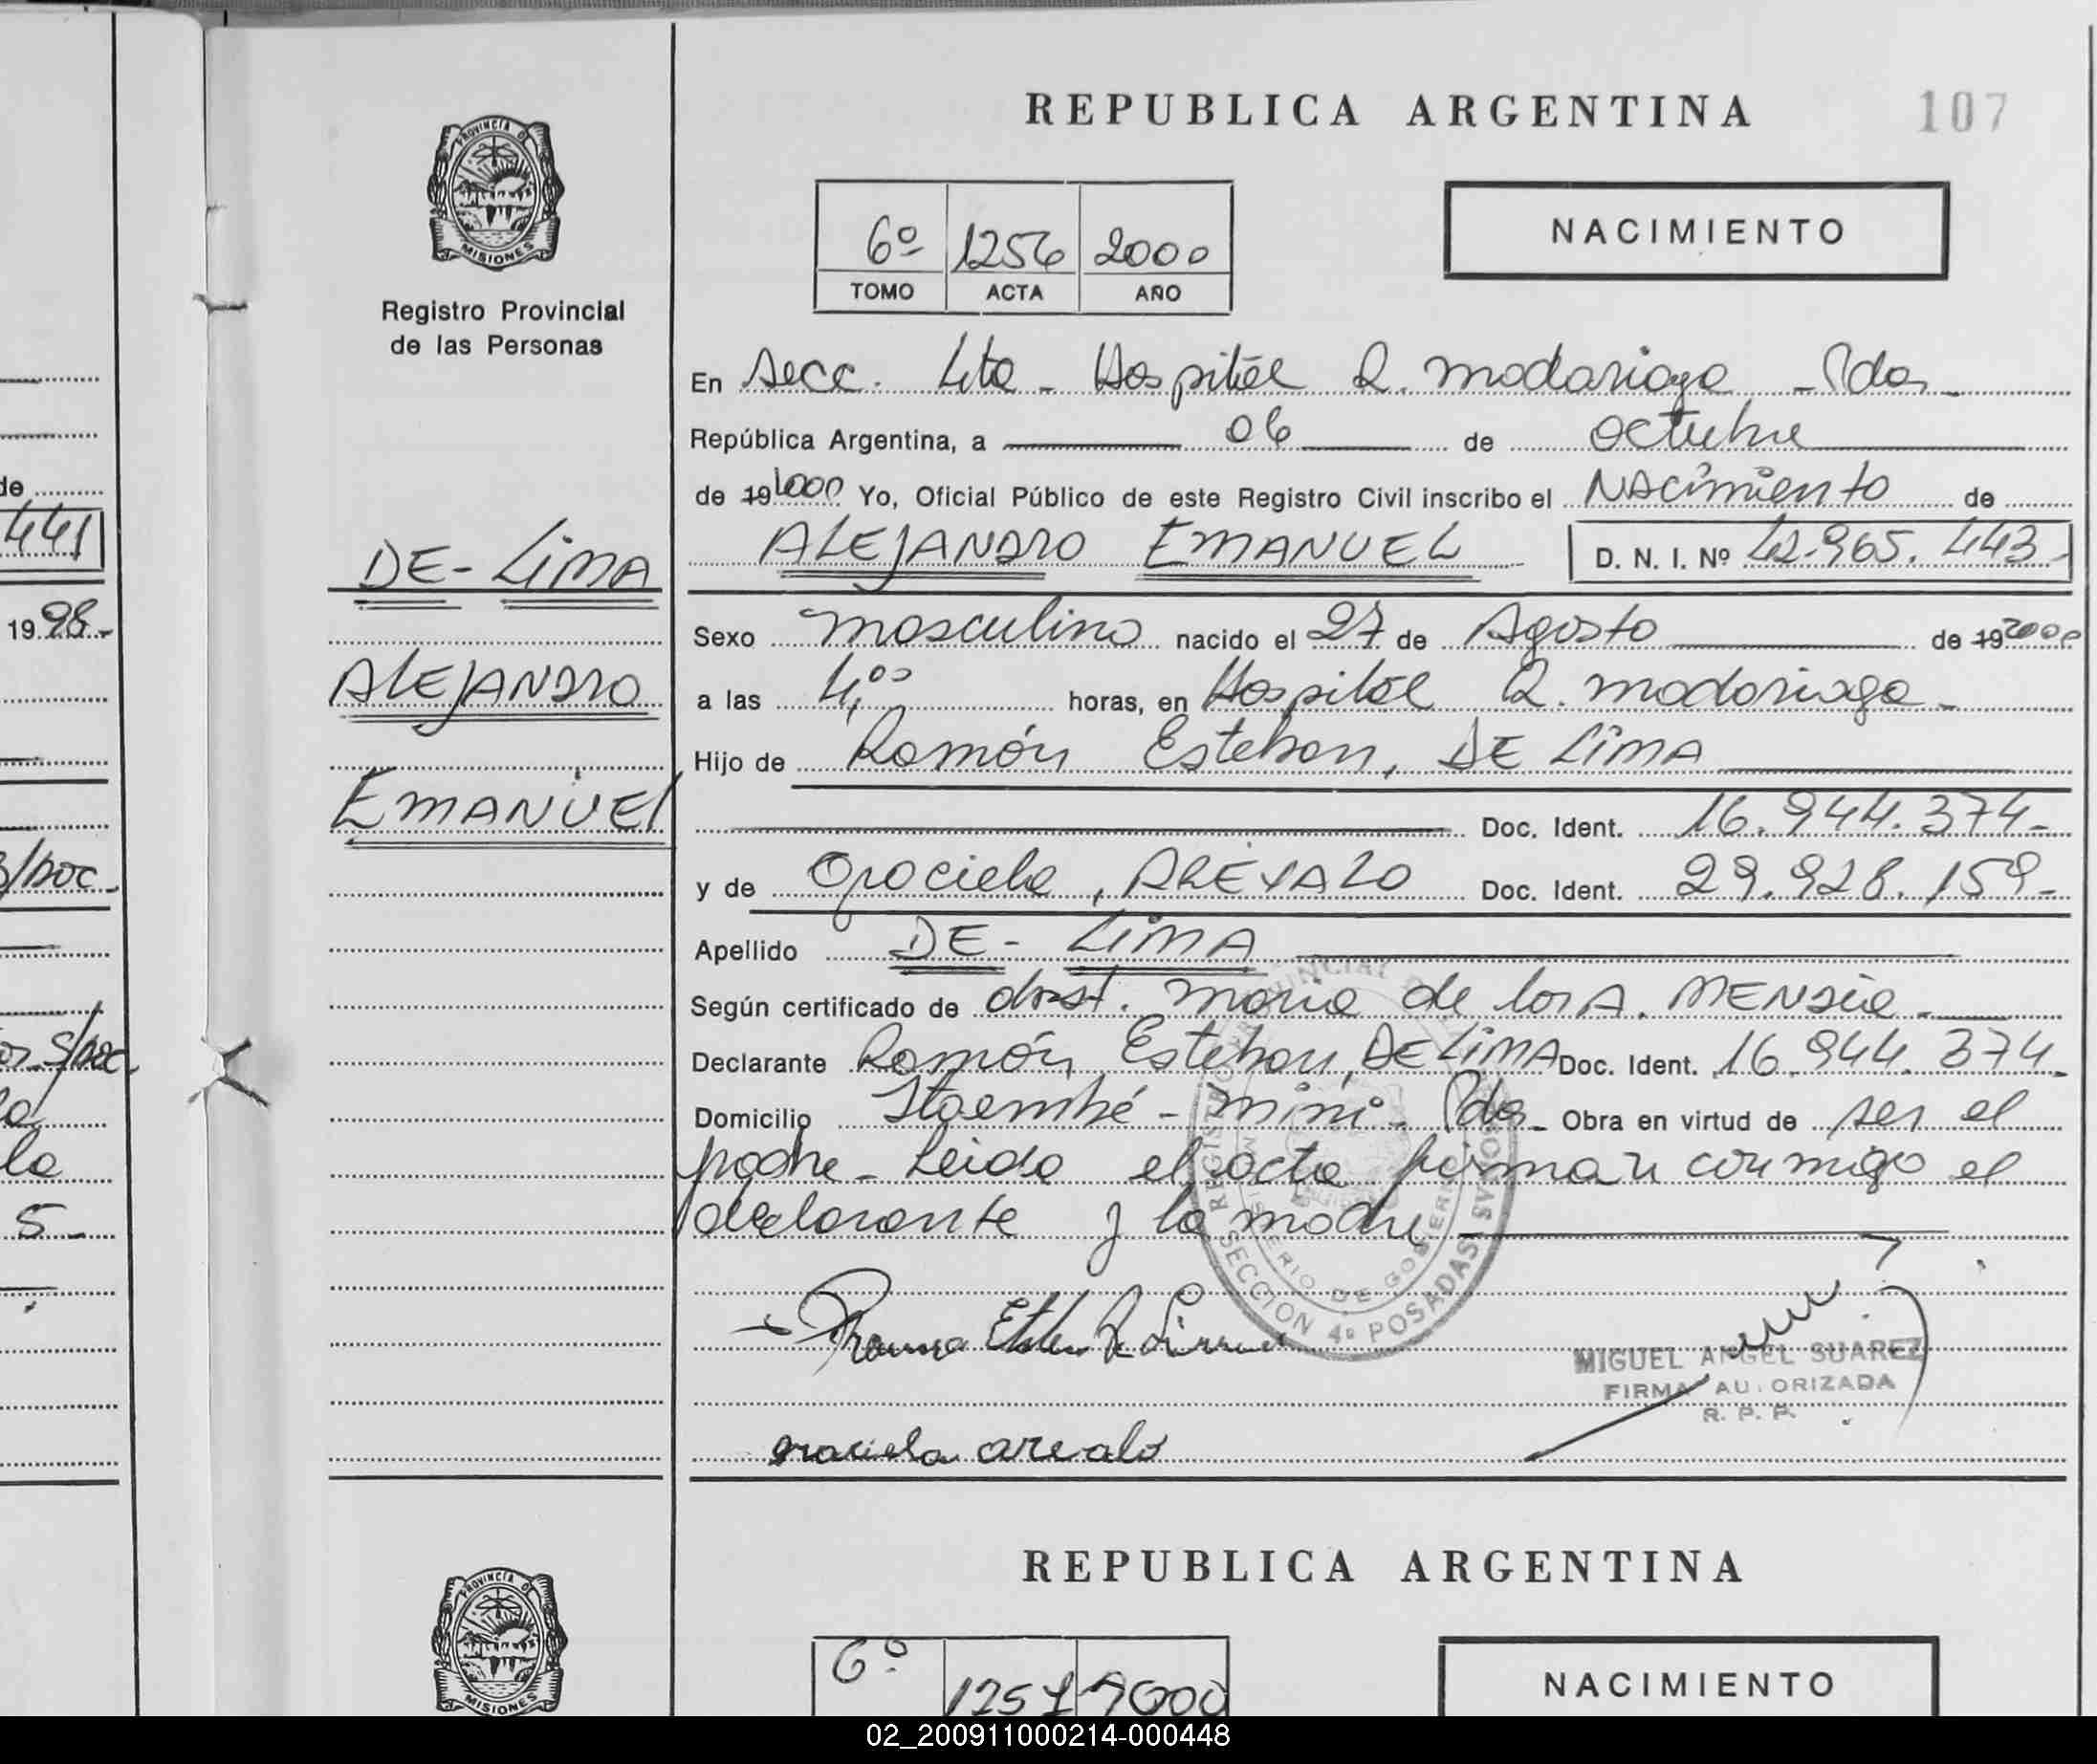 REPUBLICA ARGENTINA
107
PROVINCIA DE
MISIONES
Registro Provincial
de las Personas
6º 1256 2000
TOMO ACTA AÑO
NACIMIENTO
En Secc. 4ta - Hospital R. Madariaga - Pdas -
República Argentina, a 06 de octubre
de 19 2000 Yo, Oficial Público de este Registro Civil inscribo el NAcimiento de
ALEJANDRO EMANUEL D. N. I. Nº 42.965.443-
DE - LimA
ALEJANDRO
EMANUEl
Sexo masculino nacido el 27 de Agosto de 19 2000
a las 4,00 horas, en Hospital R. Madariaga -
Hijo de Ramón Esteban, DE LimA
Doc. Ident. 16.944.374-
y de Graciela, AREVALO Doc. Ident. 29.928.159-
Apellido DE - LimA
Según certificado de obst. Maria de los A. MENDEZ
Declarante Ramón Esteban, DE LimA Doc. Ident. 16.944.374-
Domicilio Itaembé - mini - Pdas - Obra en virtud de ser el
padre - Leida el acta firman conmigo el
declarante y la madre
REGISTRO PROVINCIAL DE LAS PERSONAS
MINISTERIO DE GOBIERNO
SECCION 4ª POSADAS
MIGUEL ANGEL SUAREZ
FIRMA AUTORIZADA
R. P. P.
graciela arevalo
de
441
1998-
s/doc-
s/doc.
lo
la
5-
REPUBLICA ARGENTINA
PROVINCIA DE
MISIONES
6º 1257 2000
NACIMIENTO
02_200911000214-000448